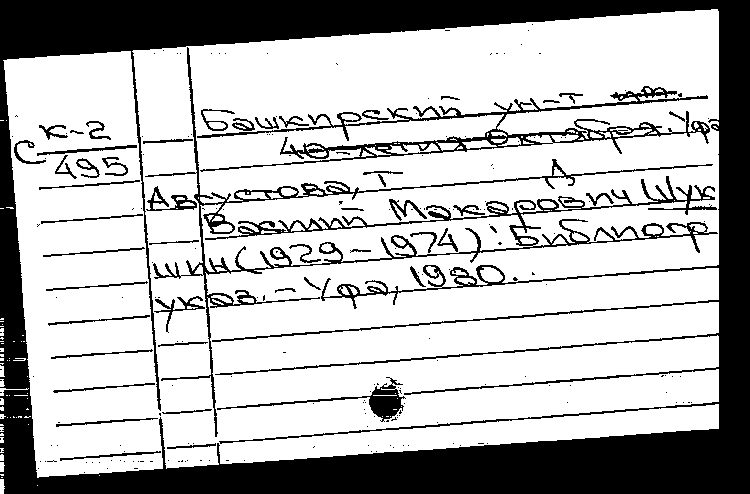 Башкирский ун-т
К-2
С
495
40-летия Октября. Уфа
Августова, Т
Д
Василий Макарович Шук
шин (1929-1974): Библиогр
указ. - Уфа, 1980.